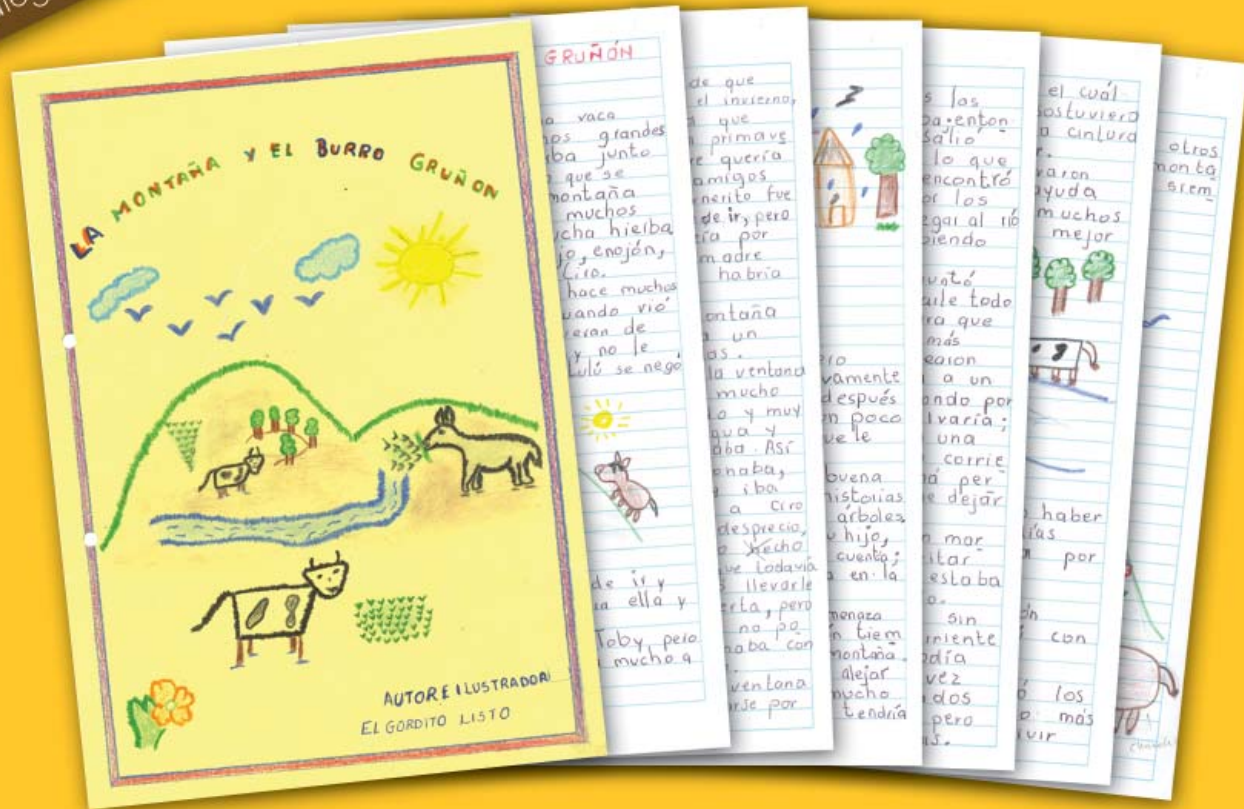 LA MONTAÑA Y EL BURRO GRUÑON
AUTOR E ILUSTRADOR:
EL GORDITO LISTO
GRUÑÓN
a vaca
nos grandes
ba junto
que se
montaña
muchos
cha hierba
jo, enojón,
Ciro.
hace muchos
uando vió
eran de
y no le
Lulú se negó
de ir y
ia ella y
Toby, pero
mucho a
de que
el invierno,
que
primave
e quería
amigos
nerito fue
de ir, pero
ía por
madre
habría
ontaña
un
as.
la ventana
mucho
o y muy
gua y
aba. Así
onaba,
iba
a Ciro
desprecio,
hecho
ue todavía
llevarle
erta, pero
no po
naba con
ventana
arse por
ro
vamente
después
n poco
ue le
buena
historias
árboles,
u hijo,
cuenta;
en la
menaza
n tiem
montaña.
alejar
mucho
tendría
s los
ba enton
salió
lo que
encontró
or los
egar al río
biendo
untó
aile todo
ra que
más
earon
a un
ando por
lvaría;
una
corrie
á per
e dejar
n mar
itar
estaba
o.
sin
niente
odía
vez
dos
pero
as.
el cuál
sostuviera
a cintura
r.
varon
ayuda
muchos
mejor
haber
ías
por
ón
con
ó los
o más
ivir
otros
montá
siem